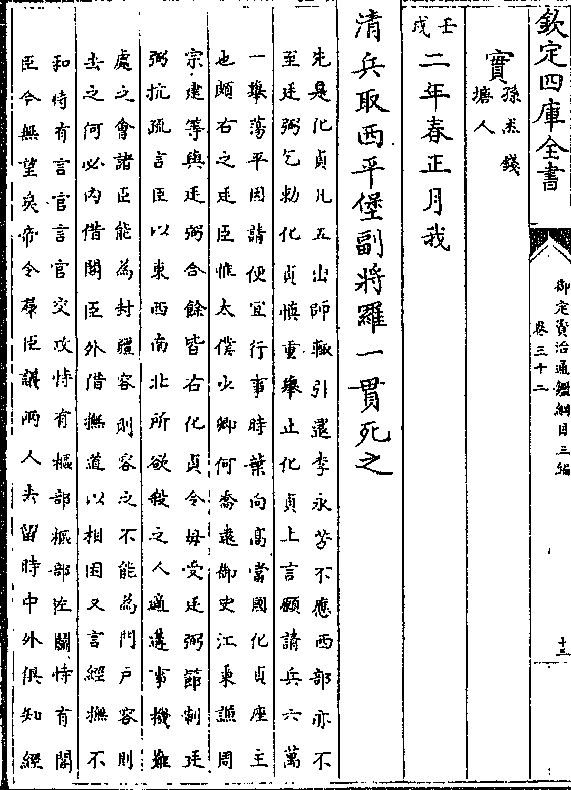 欽定四庫全書
御定資治通鑑綱目三編
卷三十二
十三
實
孫杰錢
塘人
壬
戌
二年春正月我
清兵取西平堡副將羅一貫死之
先是化貞凡五出師輒引還李永芳不應西部亦不
至廷弼乞勅化貞慎重舉止化貞上言願請兵六萬
一舉蕩平因請便宜行事時葉向高當國化貞座主
也頗右之廷臣惟太僕少卿何喬遠御史江秉謙周
宗建等與廷弼合餘皆右化貞令毋受廷弼節制廷
弼抗疏言臣以東西南北所欲殺之人適遘事機難
處之會諸臣能為封疆容則容之不能為門戶容則
去之何必內借閣臣外借撫道以相困又言經撫不
和恃有言官言官交攻恃有樞部樞部佐鬬恃有閣
臣今無望矣帝令羣臣議兩人去留時中外俱知經